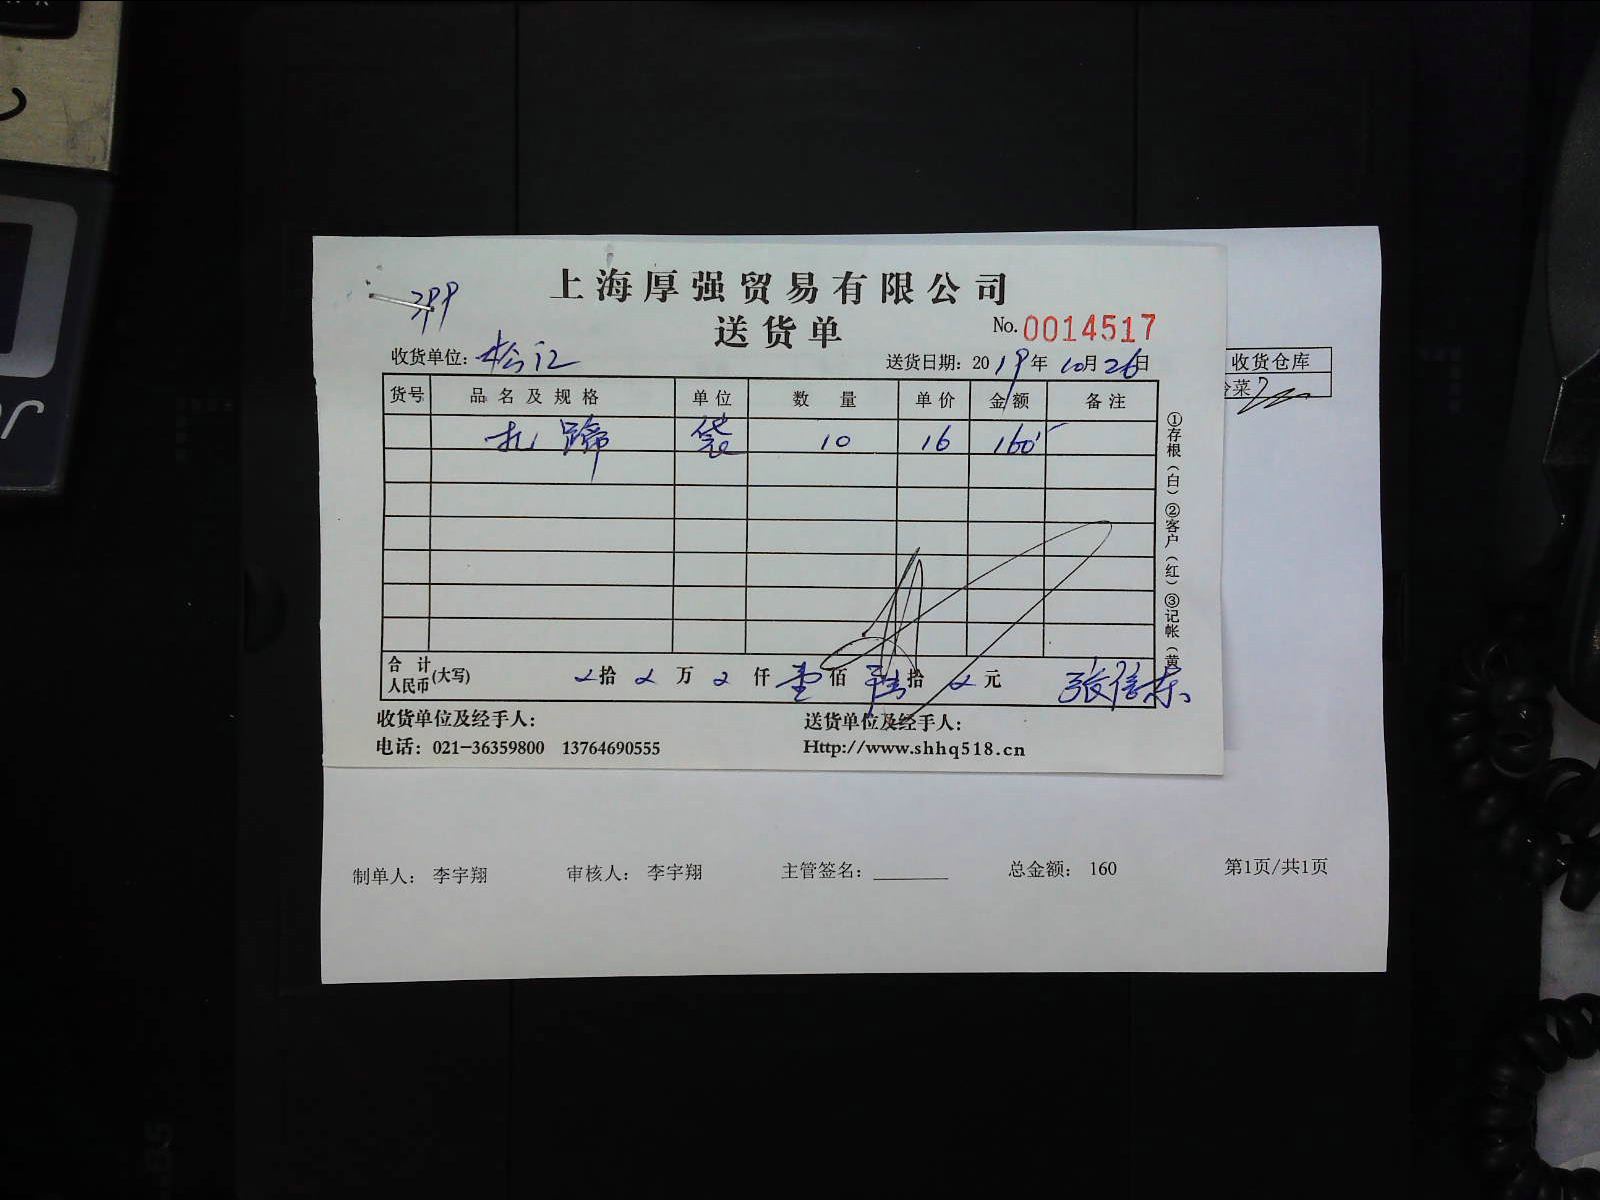 上海厚强贸易有限公司
送货单
No. 0014517
收货单位: 松江
送货日期: 2019年10月26日
货号 品名及规格 单位 数量 单价 金额 备注
扎蹄 袋 10 16 160
合计人民币(大写) 拾 万 仟 壹佰 陆拾 元
收货单位及经手人:
送货单位及经手人:
电话: 021-36359800 13764690555
Http://www.shhq518.cn
①存根(白)②客户(红)③记帐(黄
收货仓库
冷菜
制单人: 李宇翔 审核人: 李宇翔 主管签名: 总金额: 160 第1页/共1页